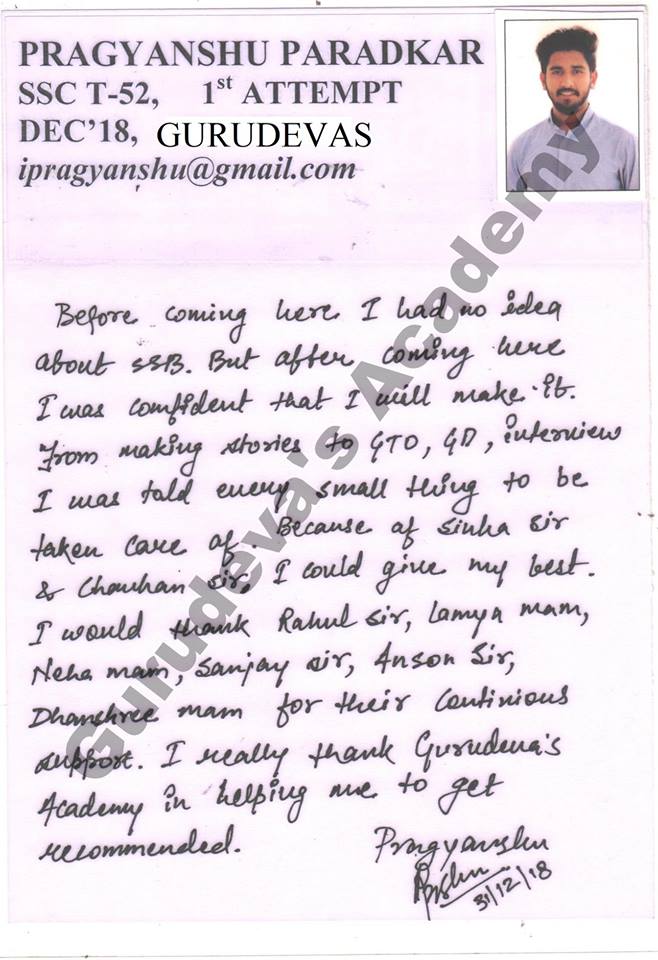 PRAGYANSHU PARADKAR
SSC T-52, 1st ATTEMPT
DEC'18, GURUDEVAS
ipragyanshu@gmail.com
Before coming here I had no idea
about SSB. But after coming here
I was confident that I will make it.
From making stories to GTO, GD, interview
I was told every small thing to be
taken care of. Because of Sinha sir
& Chowhan sir, I could give my best.
I would thank Rahul sir, Lamya mam,
Neha mam, Sanjay sir, Anson Sir,
Dhanshree mam for their continious
support. I really thank Gurudeva's
Academy in helping me to get
recommended.
Pragyanshu
31/12/18
Gurudeva's Academy